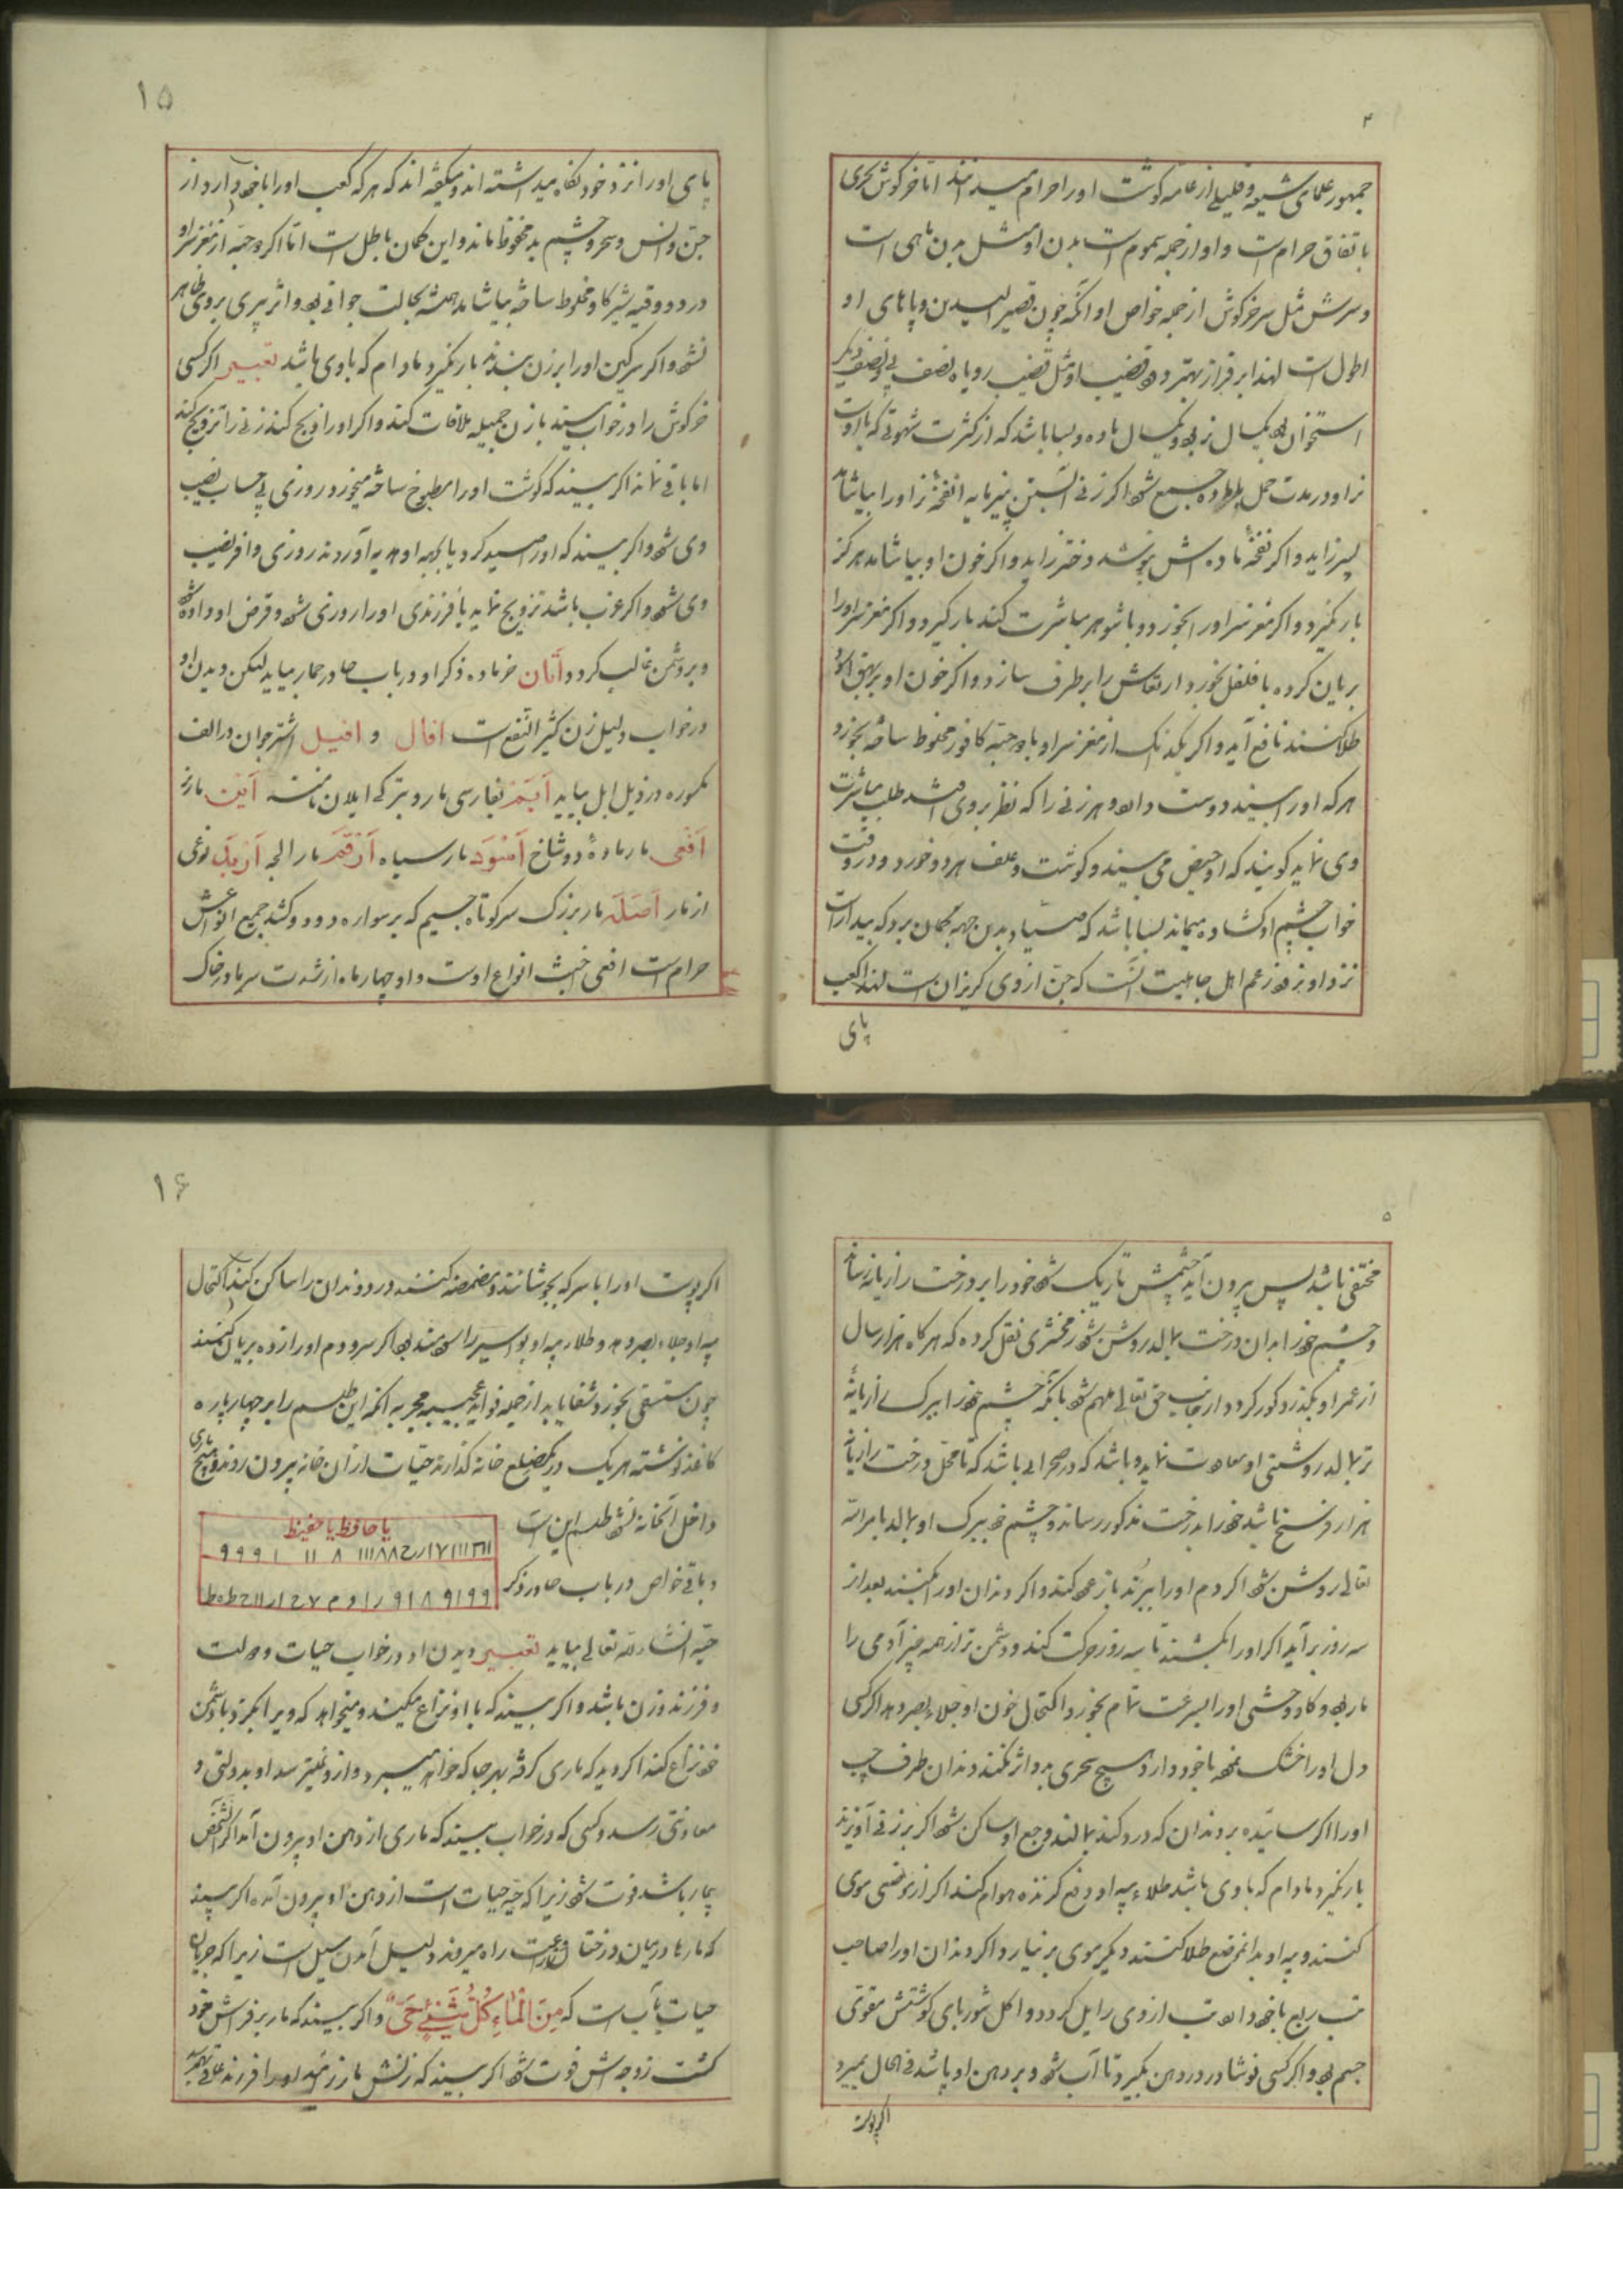 ۴
جمهور علمای شیعه و قلیلی از عامه گوشت او را حرام میدانند اما خرگوش بحری
باتفاق حرام است و او از جمله سموم است بدن او مثل بدن ماهی است
و سرش مثل سر خرگوش از جمله خواص او آنکه چون قصیر الیدین و پاهای او
اطول است لهذا بر فراز بهتر رود قضیب او مثل قضیب روباه نصف پی و نصف دیگر
استخوان بود یکسال نر بود و یکسال ماده و بسا باشد که از کثرت شهوتی که با اوست
نر او در مدت حمل با ماده جمع شود اگر زنی آبستن پنیرمایه انفخه نر او را بیاشامد
پسر زاید و اگر نفخه ماده اش بنوشد دختر زاید و اگر خون او بیاشامد هرگز
بار نگیرد و اگر مغز سر او را بخورد و با شوهر مباشرت کند بار گیرد و اگر مغز سر او را
بریان کرده با فلفل بخورد ارتعاش را برطرف سازد و اگر خون او بر بهق
طلا کنند نافع آید و اگر یکدانک از مغز سر او با دو حبه کافور مخلوط ساخته بخورد
هر که او را بیند دوست دارد و هر زنی را که نظر بر وی افتد طلب مباشرت
وی نماید گویند که او حیض می بیند و گوشت و علف هر دو خورد و در وقت
خواب چشم او گشاده میماند بسا باشد که صیاد بدین جهه گمان برد که بیدار است
نزد او نرود زعم اهل جاهلیت آنست که جن از وی گریزان است لهذا کعب
پای
۱۵
پای او را نزد خود نگاه میداشته اند و میگفته اند که هر که کعب او را با خود دارد از
جن و انس و سحر و چشم بد محفوظ ماند و این گمان باطل است اما اگر دو حبه از مغز سر او
در دو وقیه شیر گاو مخلوط ساخته بیاشامد همیشه بحالت جوانی بود و اثر پیری بر وی ظاهر
نشود و اگر سرگین او را بر زن بندند بار نگیرد مادام که با وی باشد تعبیر اگر کسی
خرگوش را در خواب بیند با زن جمیله ملاقات کند و اگر او را ذبح کند زنی را تزویج کند
اما باقی نماند اگر بیند که گوشت او را مطبوخ ساخته میخورد روزی بی حساب نصیب
وی شود و اگر بیند که او را صید کرد یا بجهه او هدیه آوردند روزی وافر نصیب
وی شود و اگر عزب باشد تزویج نماید یا فرزندی او را روزی شود و قرض او داده شود
و بر دشمن غالب گردد اتان خر ماده ذکر او در باب حا در حمار بیاید لیکن دیدن او
در خواب دلیل زن کثیر النفع است افال و افیل اشتر جوان در الف
مکسوره در ذیل ابل بیاید ایم بفارسی مار و بترکی ایلان نامند این مار نر
افعی مار ماده دو شاخ اسود مار سیاه ارقم مار ابلق ازبد نوعی
از مار اصله مار بزرک سر کوتاه جسیم که بر سواره دود و کشد جمیع انواعش
حرام است افعی اخبث انواع اوست و او چهار ماه از شدت سرما در خاک
۵
مختفی باشد پس بیرون آید چشمش تاریک شود خود را بر درخت رازیانه رساند
و چشم خود را بدان درخت بمالد روشن شود زمخشری نقل کرده که هر گاه هزار سال
از عمر او بگذرد کور گردد از جانب حق تعالی ملهم شود بآنکه چشم خود را ببرک رازیانه
تر بمالد روشنی او معاودت نماید و باشد که در صحرایی باشد که تا محل درخت رازیانه
هزار فرسخ باشد خود را بدرخت مذکور رساند و چشم خود ببرک او بمالد بامر الله
تعالی روشن شود اگر دم او را ببرند باز عود کند و اگر دندان او را بکنند بعد از
سه روز برآید اگر او را بکشند تا سه روز حرکت کند و دشمن تر از همه چیز آدمی را
مار بود و گاو وحشی او را بسرعت تمام بخورد اکتحال خون او جلاء بصر دهد اگر کسی
دل او را خشک نموده با خود دارد هیچ سحری بدو اثر نکند دندان طرف چپ
او را اگر سائیده بر دندان که درد کند بمالند وجع او ساکن شود اگر بر زنی آویزند
بار نگیرد مادام که با وی باشد طلاء پیه او دفع گزنده هوام کند اگر از موضعی موی
کنند و پیه او بدانموضع طلا کنند دیگر موی بر نیارد و اگر دندان او را صاحب
تب ربع با خود دارد تب از وی زایل گردد و اکل شوربای گوشتش مقوی
جسم بود و اگر کسی نوشادر در دهن بگیرد تا آب شود و بر دهن او پاشد فی الحال بمیرد
اگر پوست
۱۶
اگر پوست او را با سرکه بجوشانند و مضمضه کنند درد دندان را ساکن کند اکتحال
پیه او جلاء بصر دهد و طلاء پیه او بواسیر را سودمند بود اگر سر و دم او را زده بریان کنند
چون مستسقی بخورد شفا یابد از جمله فواید عجیبه مجربه آنکه این طلسم را بر چهار پاره
کاغذ نوشته هر یک در یک ضلع خانه گذارند حیات از آن خانه بیرون روند و هیچ ماری
داخل آنخانه نشود طلسم این است
یا حافظ یا حفیظ
و باقی خواص در باب حا در ذکر
حیه انشاءالله تعالی بیاید تعبیر دیدن او در خواب حیات و دولت
و فرزند و زن باشد و اگر بیند که با او نزاع میکند و میخواهد که ویرا بگزد با دشمن
خود نزاع کند اگر دید که ماری گرفته بهر جا که خواهد میبرد و از او نمیترسد او بدولتی و
معاونتی رسد و کسی که در خواب بیند که ماری از دهن او بیرون آمد اگر آنشخص
بیمار باشد فوت شود زیرا که حیه حیات است از دهن او بیرون آمده اگر بیند
که مارها در میان درختان و زراعت راه میروند دلیل آمدن سیل است زیرا که جریان
حیات بآب است که مِنَ الْمَاءِ كُلَّ شَيْءٍ حَيٍّ و اگر بیند که مار بر فراش خود
کشت زوجه اش فوت شود اگر بیند که زنش مار زائید او را فرزند عاقی بهم رسد